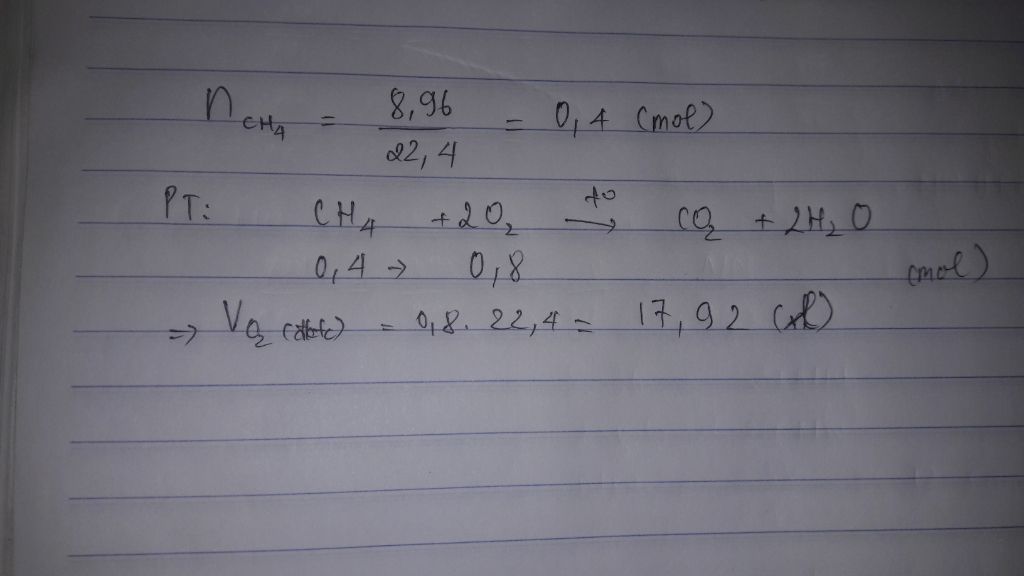 n CH₄ = 8,96 / 22,4 = 0,4 (mol)
PT: CH₄ + 2O₂ —tᵒ→ CO₂ + 2H₂O
0,4 → 0,8 (mol)
=> V O₂ (đktc) = 0,8. 22,4 = 17,92 (l)